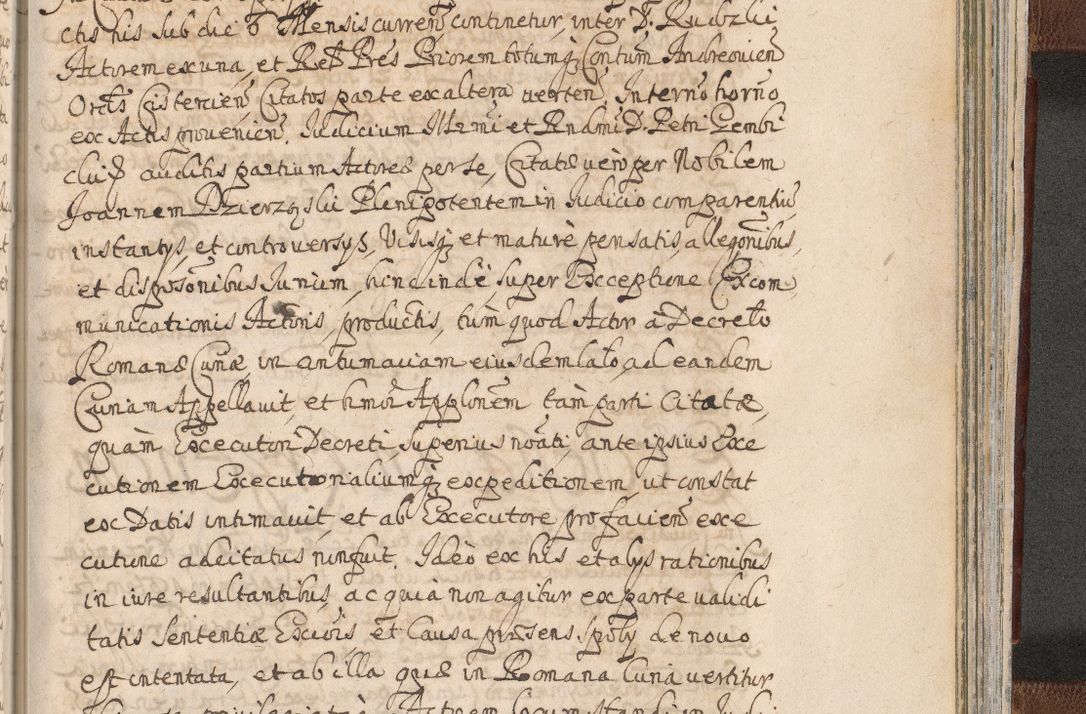 ctis his sub die 6 Mensis curren̄ continetur, inter D. Rudzki
Actorem ex una, et Rel̄ Pres Priorem totumq; Contum̄ Andreovien̄
Ord̄s Cisterciēn Citatos parte ex altera verten̄. Interno horno
ex Actis provenien̄. Iudicium Illr̄mi et Rndmi D. Petri Gembi
ckij auditis partium Actoreæ per se, Citatæ vero per Nobilem
Joannem Dzierząski Plenipotentem in Iudicio comparentiu̅
instantys, et controversys, Visisq; et maturè pensatis, allegōnibus,
et disposōnibus Iurium, hinc inde, super Exceptione Excom,
municationis Actoris, productis, tum quod Actor à Decreto
Romanæ Curiæ, in contumaciam eiusdem lato, ad eandem
Curiam Appellavit, et hmōi Applōnem tam parti Citatæ,
quam Executori Decreti, superius noāti, ante ipsius Exe
cutionem Executorialiumq; expeditionem, ut constat
ex Datis intimavit, et ab Executore pro facien̄ exe
cutione adcitatus non fuit. Ideò ex his et alys rationibus
in iure resultantibus, ac quia non agitur ex parte validi
tatis Sententiæ Excōis et Causa præsens spoly de novo
est intentata, et ab illa quæ in Romana Curia vertitur
Actorem locum standi in Iudi